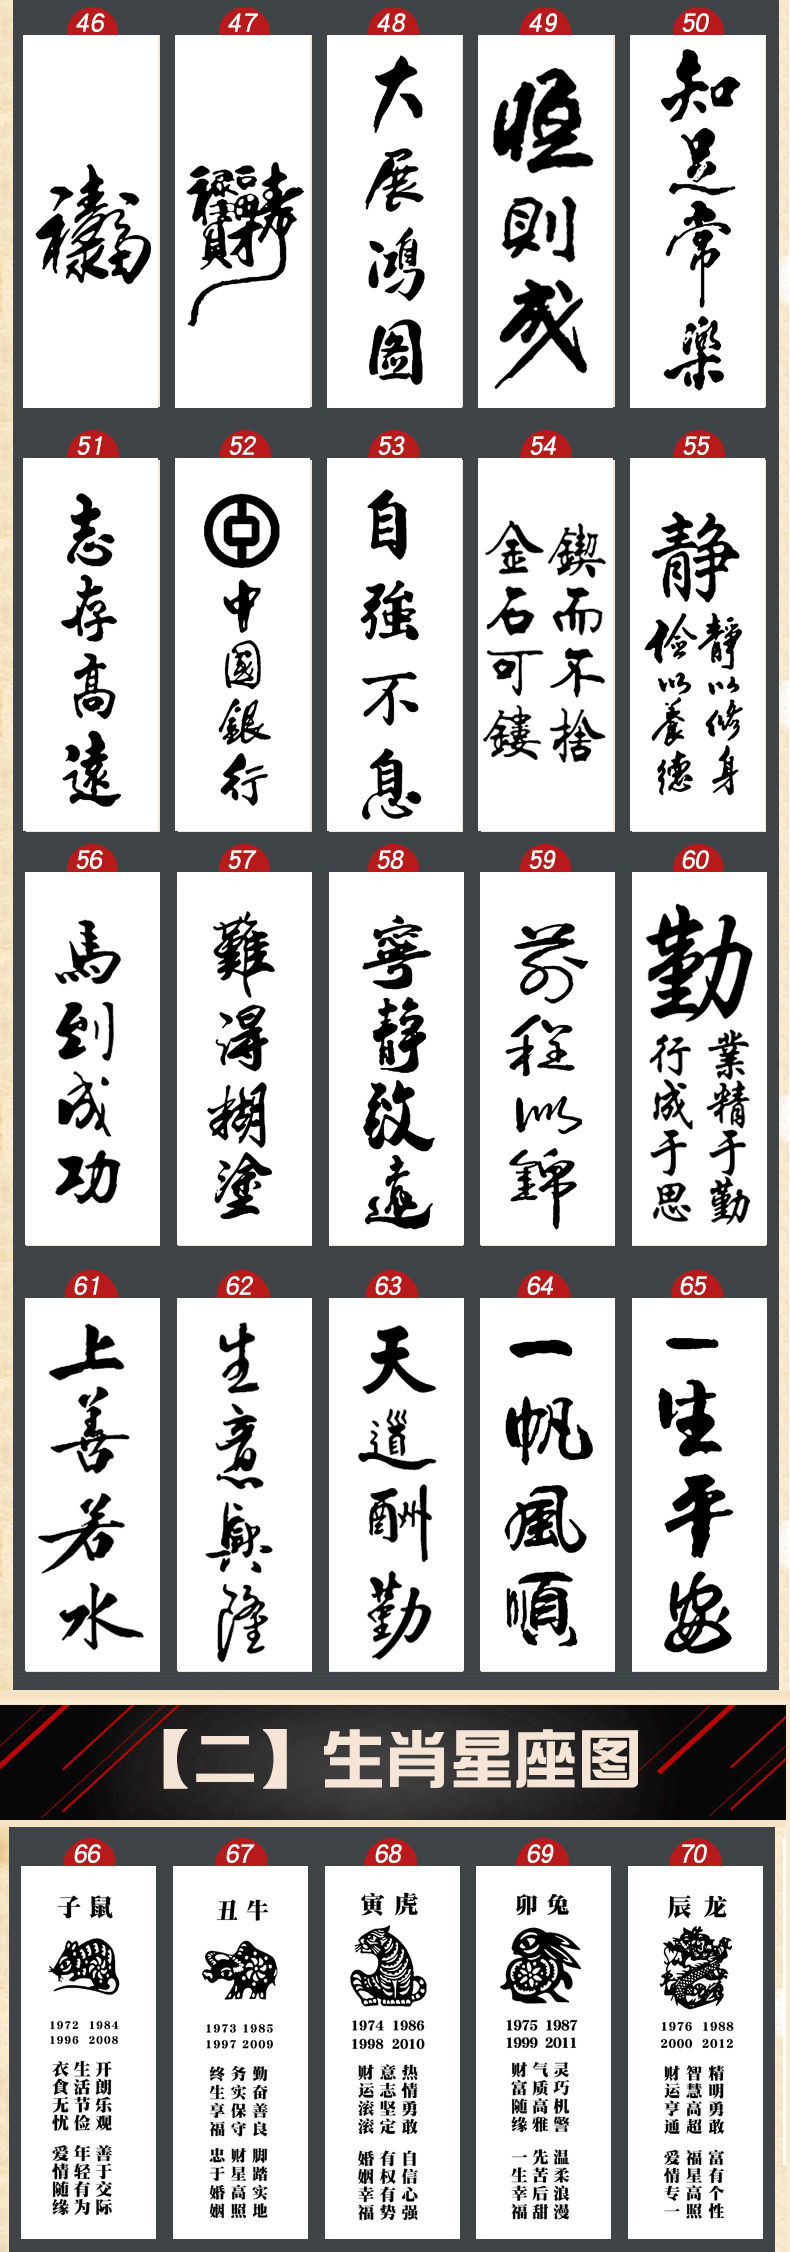 46 47 48 49 50
大展鸿图
恒則成
知足常樂
51 52 53 54 55
志存高遠
中國銀行
自強不息
鍥而不捨
金石可鏤
静
靜以修身
儉以養德
56 57 58 59 60
馬到成功
難得糊塗
寧靜致遠
前程似錦
勤
業精于勤
行成于思
61 62 63 64 65
上善若水
生意興隆
天道酬勤
一帆風順
一生平安
【二】生肖星座图
66 67 68 69 70
子鼠
1972 1984
1996 2008
开朗乐观 善于交际
生活节俭 年轻有为
衣食无忧 爱情随缘
丑牛
1973 1985
1997 2009
勤奋善良 脚踏实地
务实保守 财星高照
终生享福 忠于婚姻
寅虎
1974 1986
1998 2010
热情勇敢 自信心强
意志坚定 有权有势
财运滚滚 婚姻幸福
卯兔
1975 1987
1999 2011
灵巧机警 温柔浪漫
气质高雅 先苦后甜
财富随缘 一生幸福
辰龙
1976 1988
2000 2012
精明勇敢 富有个性
智慧高超 福星高照
财运亨通 爱情专一